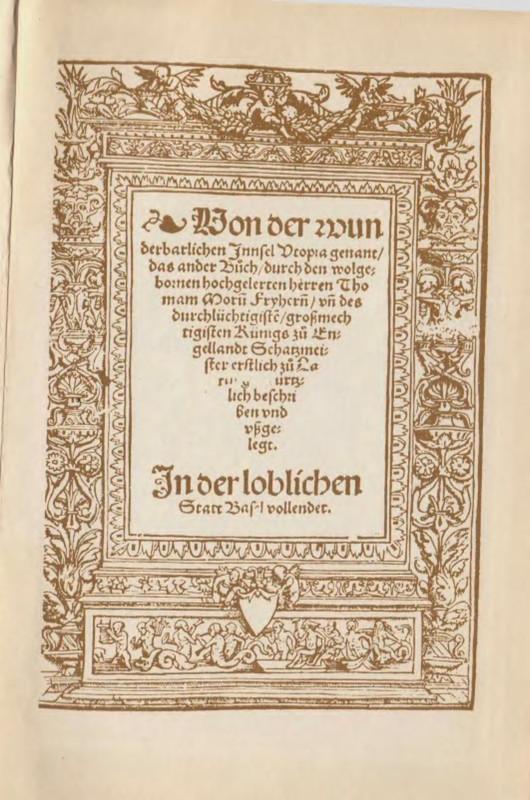 Von der wun
derbarlichen Jnnsel Vtopia genant/
das ander Bůch/durch den wolge⸗
bornen hochgelerten herren Tho
mam Morū Fryherū/ vñ des
durchlüchtigistē/großmech
tigisten Künigs zů En⸗
gellandt Schatzmei⸗
ster erstlich zů La
lich beschri
ben vnd
vßge⸗
legt.
Jn der loblichen
Statt Basel vollendet.